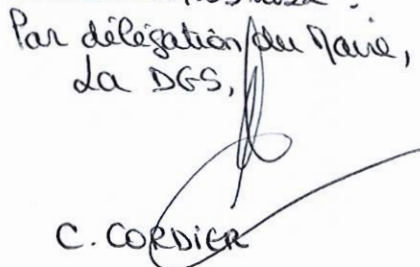 Par délégation du Maire,
La DGS,
C. CORDIER